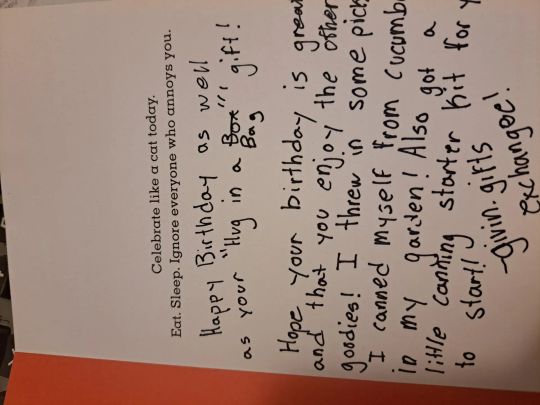 Celebrate like a cat today.
Eat. Sleep. Ignore everyone who annoys you.
Happy Birthday as well
as your "Hug in a Box" gift!
Bag
Hope your birthday is
and that you enjoy the other
goodies! I threw in some
I canned myself from
in my garden! Also got a
little canning starter kit for
to start!
-givin.gifts
exchangee!